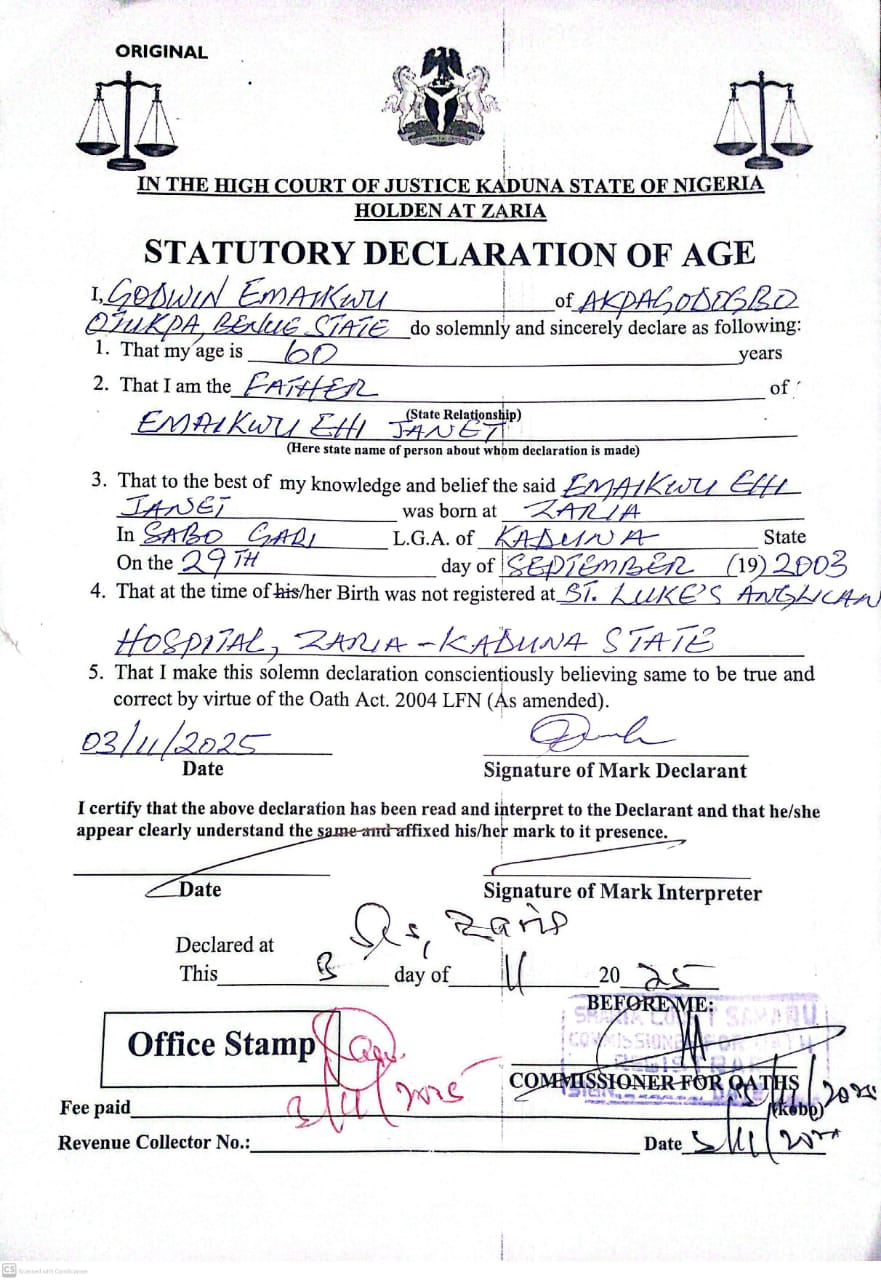 ORIGINAL
IN THE HIGH COURT OF JUSTICE KADUNA STATE OF NIGERIA
HOLDEN AT ZARIA
STATUTORY DECLARATION OF AGE
I, GODWIN EMAIKWU of AKPAGODOGBO
OTUKPA, BENUE STATE do solemnly and sincerely declare as following:
1. That my age is 60 years
2. That I am the FATHER of
(State Relationship)
EMAIKWU EHI JANET
(Here state name of person about whom declaration is made)
3. That to the best of my knowledge and belief the said EMAIKWU EHI
JANET was born at ZARIA
In SABO GARI L.G.A. of KADUNA State
On the 29TH day of SEPTEMBER (19) 2003
4. That at the time of his/her Birth was not registered at ST. LUKE'S ANGLICAN
HOSPITAL, ZARIA - KADUNA STATE
5. That I make this solemn declaration conscientiously believing same to be true and
correct by virtue of the Oath Act. 2004 LFN (As amended).
03/11/2025
Date Signature of Mark Declarant
I certify that the above declaration has been read and interpret to the Declarant and that he/she
appear clearly understand the same and affixed his/her mark to it presence.
Date Signature of Mark Interpreter
Declared at Zaria
This 3 day of 11 20 25
BEFORE ME:
SHARIA COURT SAMARU
COMMISSIONER FOR OATH
REGISTRAR
Office Stamp
3/11/2025
COMMISSIONER FOR OATHS
Fee paid (kobo)
Revenue Collector No.: Date 3/11/2025
CS Scanned with CamScanner